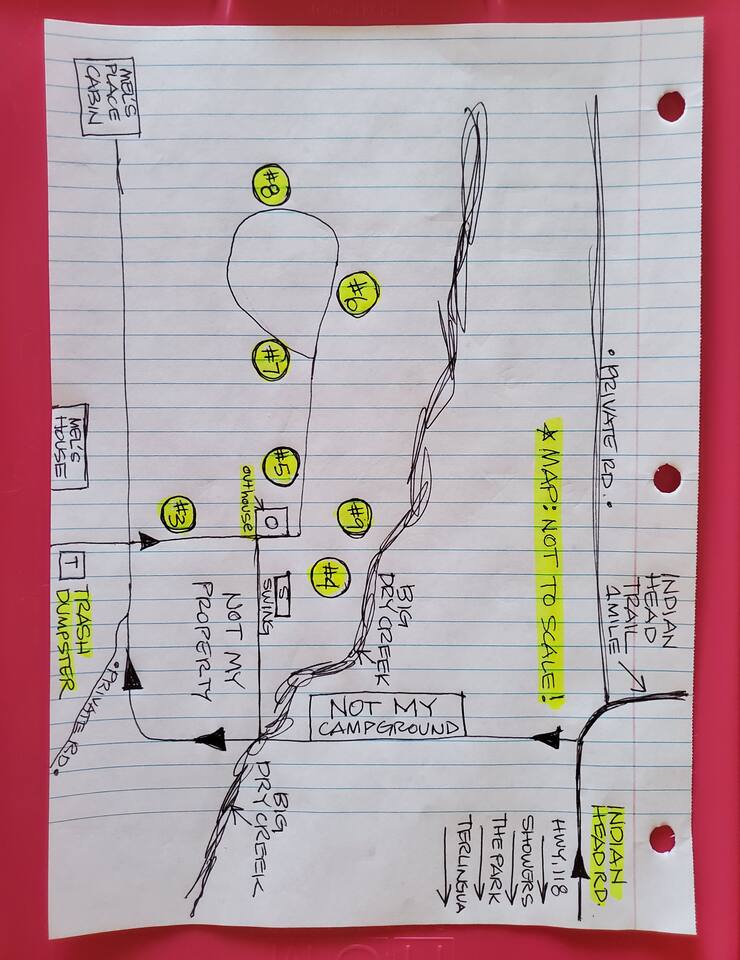 INDIAN
HEAD
TRAIL
1 MILE
• PRIVATE RD. •
INDIAN
HEAD RD.
HWY. 118
SHOWERS
THE PARK
TERLINGUA
★ MAP: NOT TO SCALE!
NOT MY
CAMPGROUND
BIG
DRY CREEK
BIG
DRY CREEK
#6
#9
#4
#8
#7
#5
O
outhouse
S
SWING
NOT MY
PROPERTY
#3
MEL'S
PLACE
CABIN
MEL'S
HOUSE
T
TRASH
DUMPSTER
• PRIVATE RD. •